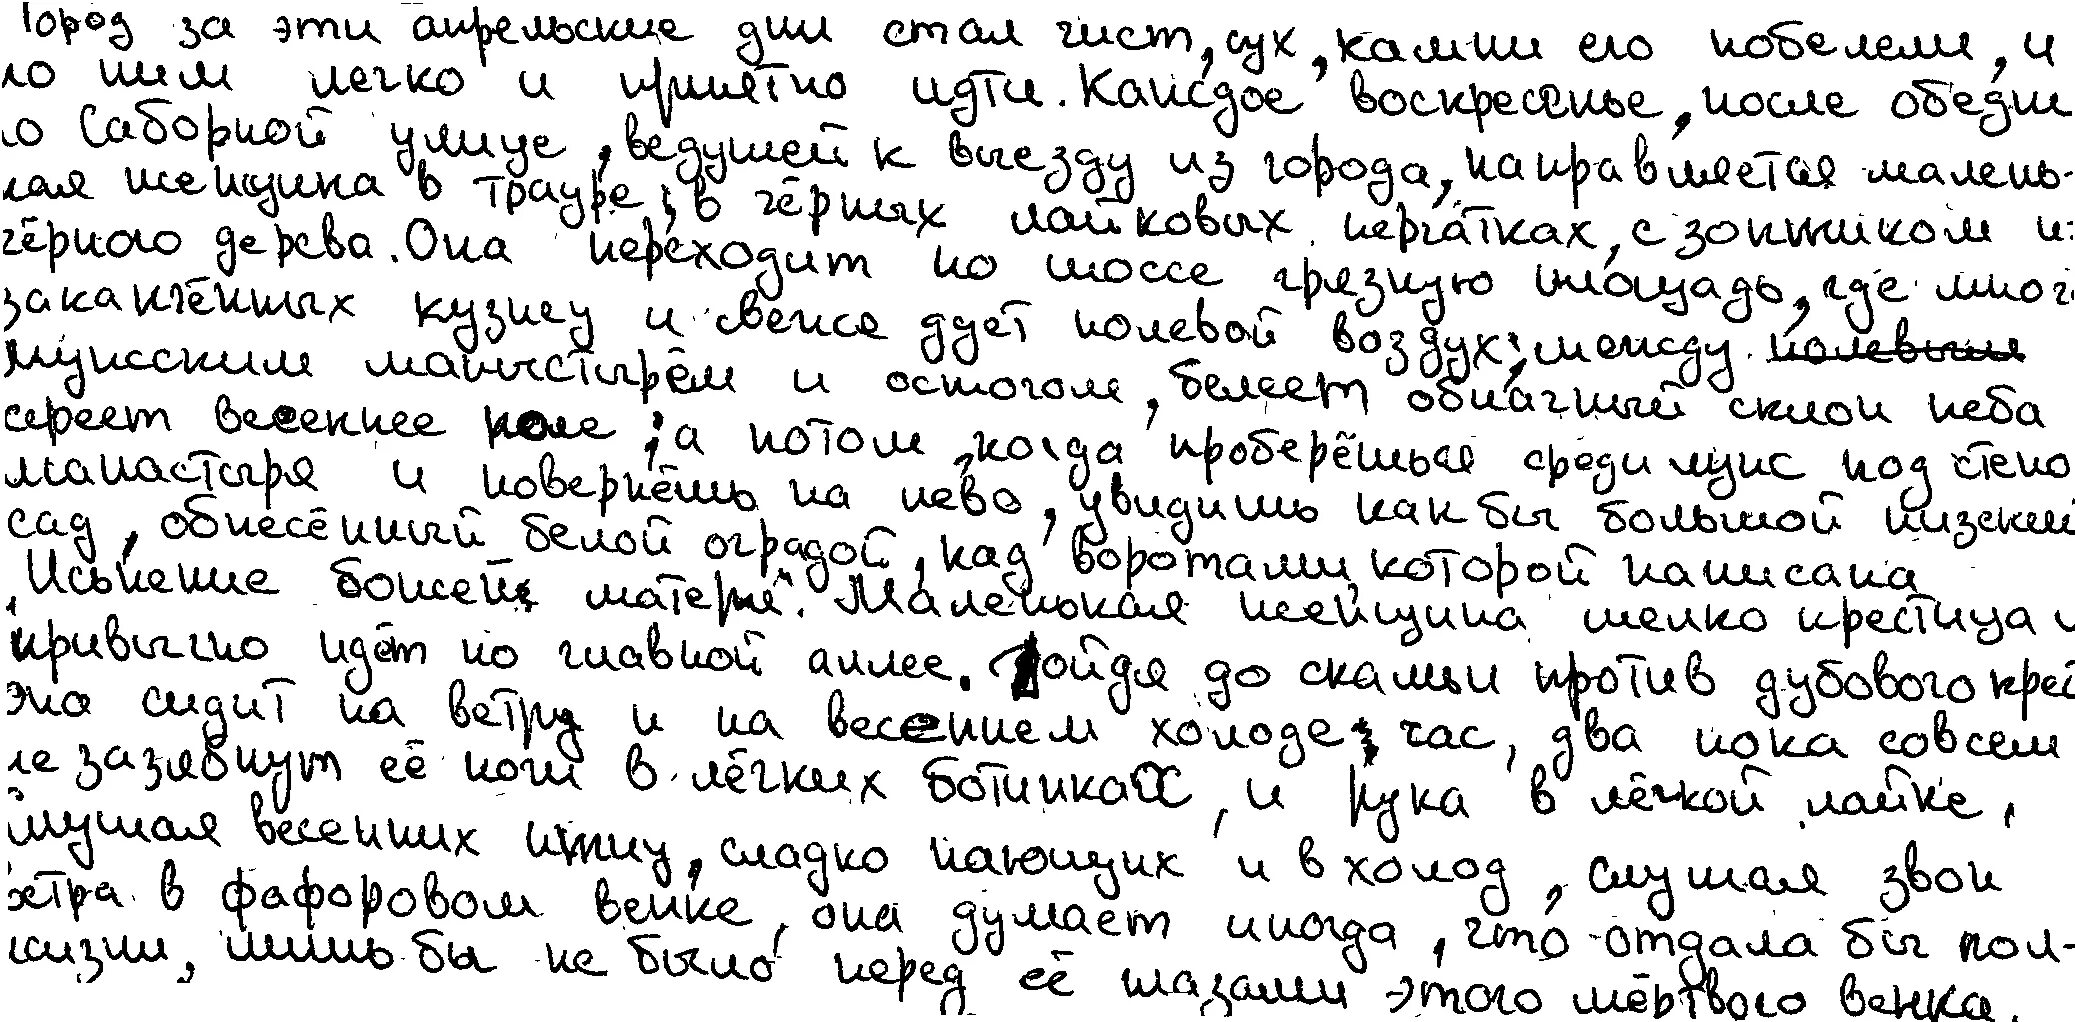 Город за эти апрельские дни стал чист, сух, камни его побелели, и
по ним легко и приятно идти. Каждое воскресенье, после обедни
по Саборной улице, ведущей к выезду из города, направляется малень-
кая женщина в трауре, в чёрных лайковых перчатках, с зонтиком из
чёрного дерева. Она переходит по шоссе грязную площадь, где много
закапчённых кузнец и свеже дует полевой воздух; между полевым
мужским манастырём и острогом, белеет облачный склон неба
сереет весеннее поле; а потом, когда проберёшься среди луж под стено
манастыря и повернёшь на лево, увидишь как бы большой низский
сад, обнесённый белой оградой, над воротами, которой написана
„Успение божей матери". Маленькая женщина мелко крестица и
привычно идёт по главной аллее. Дойдя до скамьи против дубового крес
Она сидит на ветру и на весеннем холоде час, два пока совсем
не зазябнут её ноги в лёгких ботинках, и рука в лёгкой лайке,
Слушая весенних птиц, сладко пающих и в холод, слушая звон
ветра в фафоровом венке, она думает иногда, что отдала бы пол-
жизни, лишь бы не было перед её глазами этого мёртвого венка.